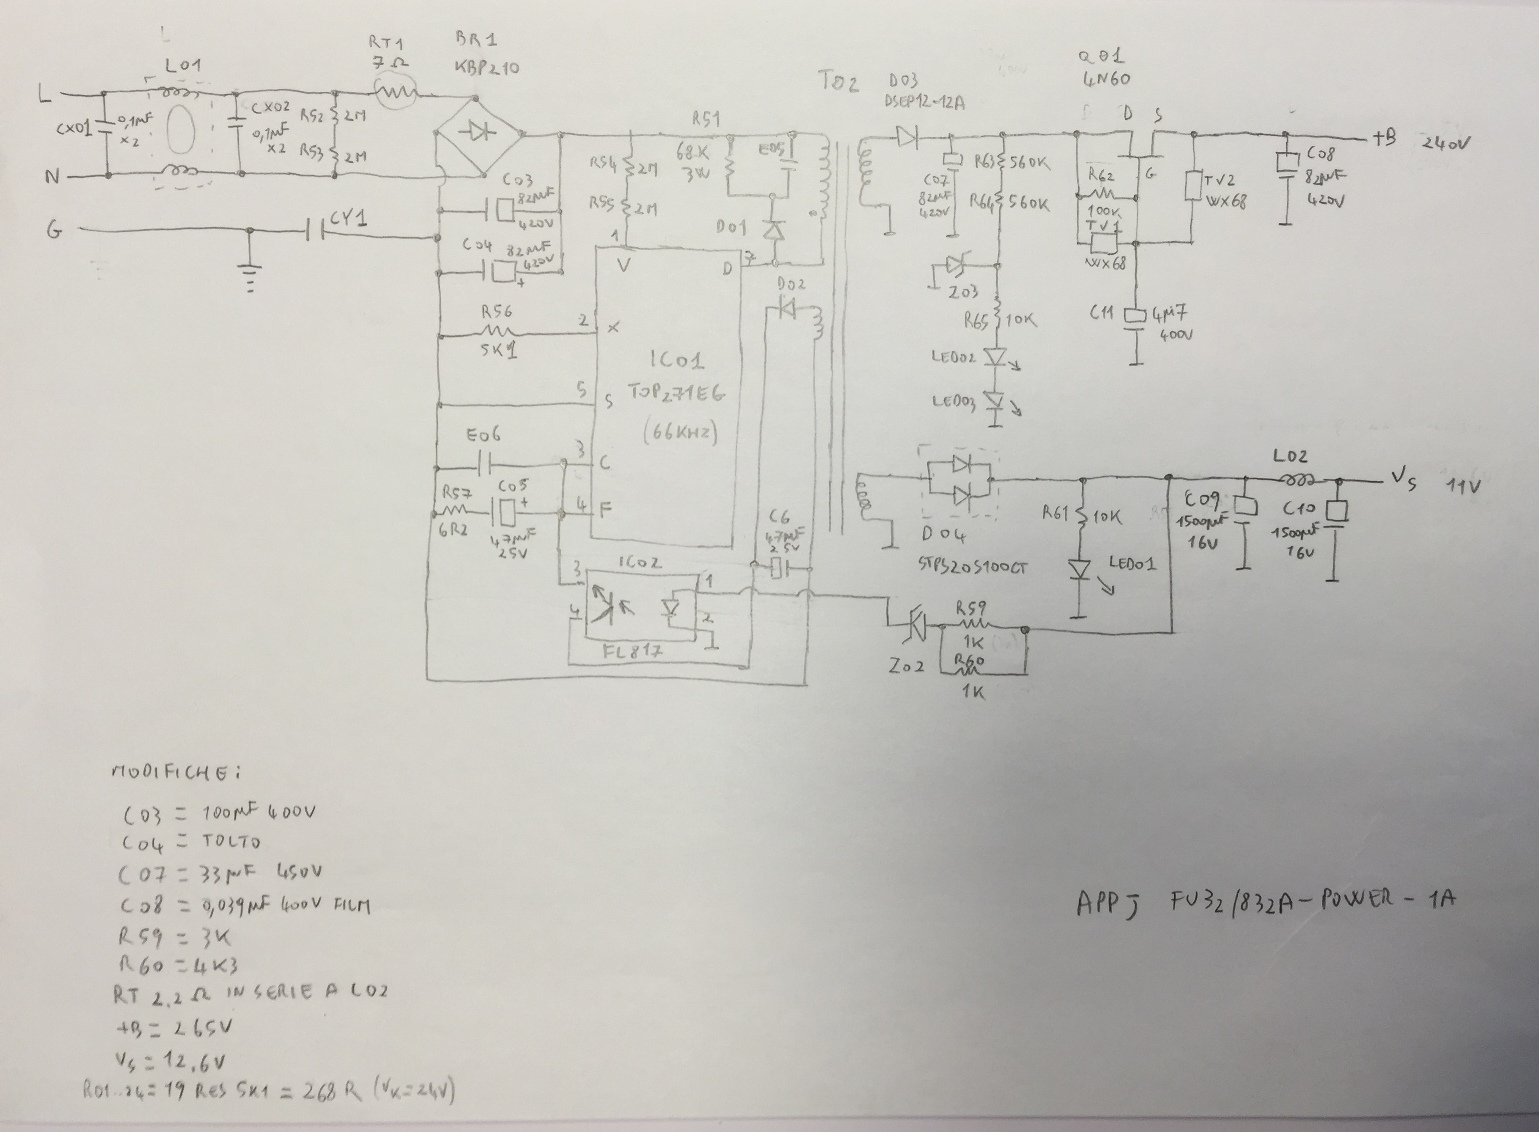 L01
RT1
7Ω
BR1
KBP210
L
CX01
0,1µF
x2
CX02
0,1µF
x2
R52
2M
R53
2M
N
G
CY1
C03
82µF
420V
C04
82µF
420V
+
R54
2M
R55
2M
R51
68K
3W
D01
1
V
D
7
R56
5K1
2
X
5
S
IC01
TOP271EG
(66KHz)
E06
3
C
R57
6R2
C05
+
47µF
25V
4
F
IC02
3
4
1
2
FL817
D02
C6
47µF
25V
T02
D03
DSEP12-12A
C07
82µF
420V
R63
560K
R64
560K
Z03
R65
10K
LED02
LED03
Q01
4N60
D
S
G
R62
100K
TV1
WX68
TV2
WX68
C11
4µ7
400V
+B
240V
C08
82µF
420V
D04
STPS20S100CT
R61
10K
LED01
C09
1500µF
16V
L02
C10
1500µF
16V
Vs
11V
Z02
R59
1K
R60
1K
MODIFICHE:
C03 = 100µF 400V
C04 = TOLTO
C07 = 33µF 450V
C08 = 0,039µF 400V FILM
R59 = 3K
R60 = 4K3
RT 2.2Ω IN SERIE A L02
+B = 265V
Vs = 12,6V
R01..24 = 19 RES 5K1 = 268R (VK=24V)
APPJ FU32/832A-POWER-1A